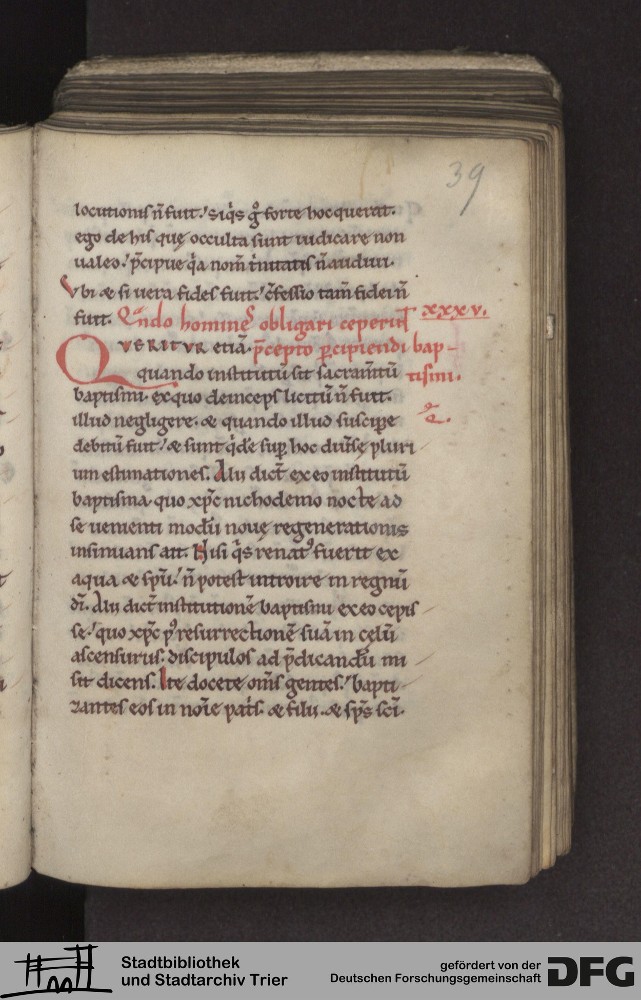 39
locutionis ñ fuit. Siq̇s g̊ forte hoc querat.
ego de his quę occulta sunt iudicare non
ualeo. p̄cipue q̇a nom̄ t̓nitatis ñ audiui.
Vbi & si uera fides fuit. c̄fessio tam̄ fidei ñ
fuit. Qn̄do hominēs obligari ceperint XXXV.
QVERITVR etiā. p̄cepto ꝑcipiendi bap-
quando institutū sit sacram̄tū tismi.
baptismi. ex quo deinceps licitū ñ fuit.
illud negligere. & quando illud susciꝑe
debitū fuit. & sunt q̇dē suꝑ hoc diuersę pluri
um estimationes. Alii dict̄ ex eo institutū
baptisma. quo xp̄c nichodemo nocte ad
se uenienti modū nouę regenerationis
insinuans ait. Nisi q̇s renatꝰ fuerit ex
aqua & sp̄u. ñ potest introire in regnū
dī. Alii dict̄ institutionē baptismi ex eo cepis
se. quo xp̄c pꝰ resurrectionē suā in cęlū
ascensurus. discipulos ad p̄dicandū mi
sit dicens. Ite docete om̄s gentes. bapti
zantes eos in noīe pat̓s. & filii. & sp̄s sc̄i.
Stadtbibliothek
und Stadtarchiv Trier
gefördert von der
Deutschen Forschungsgemeinschaft
DFG